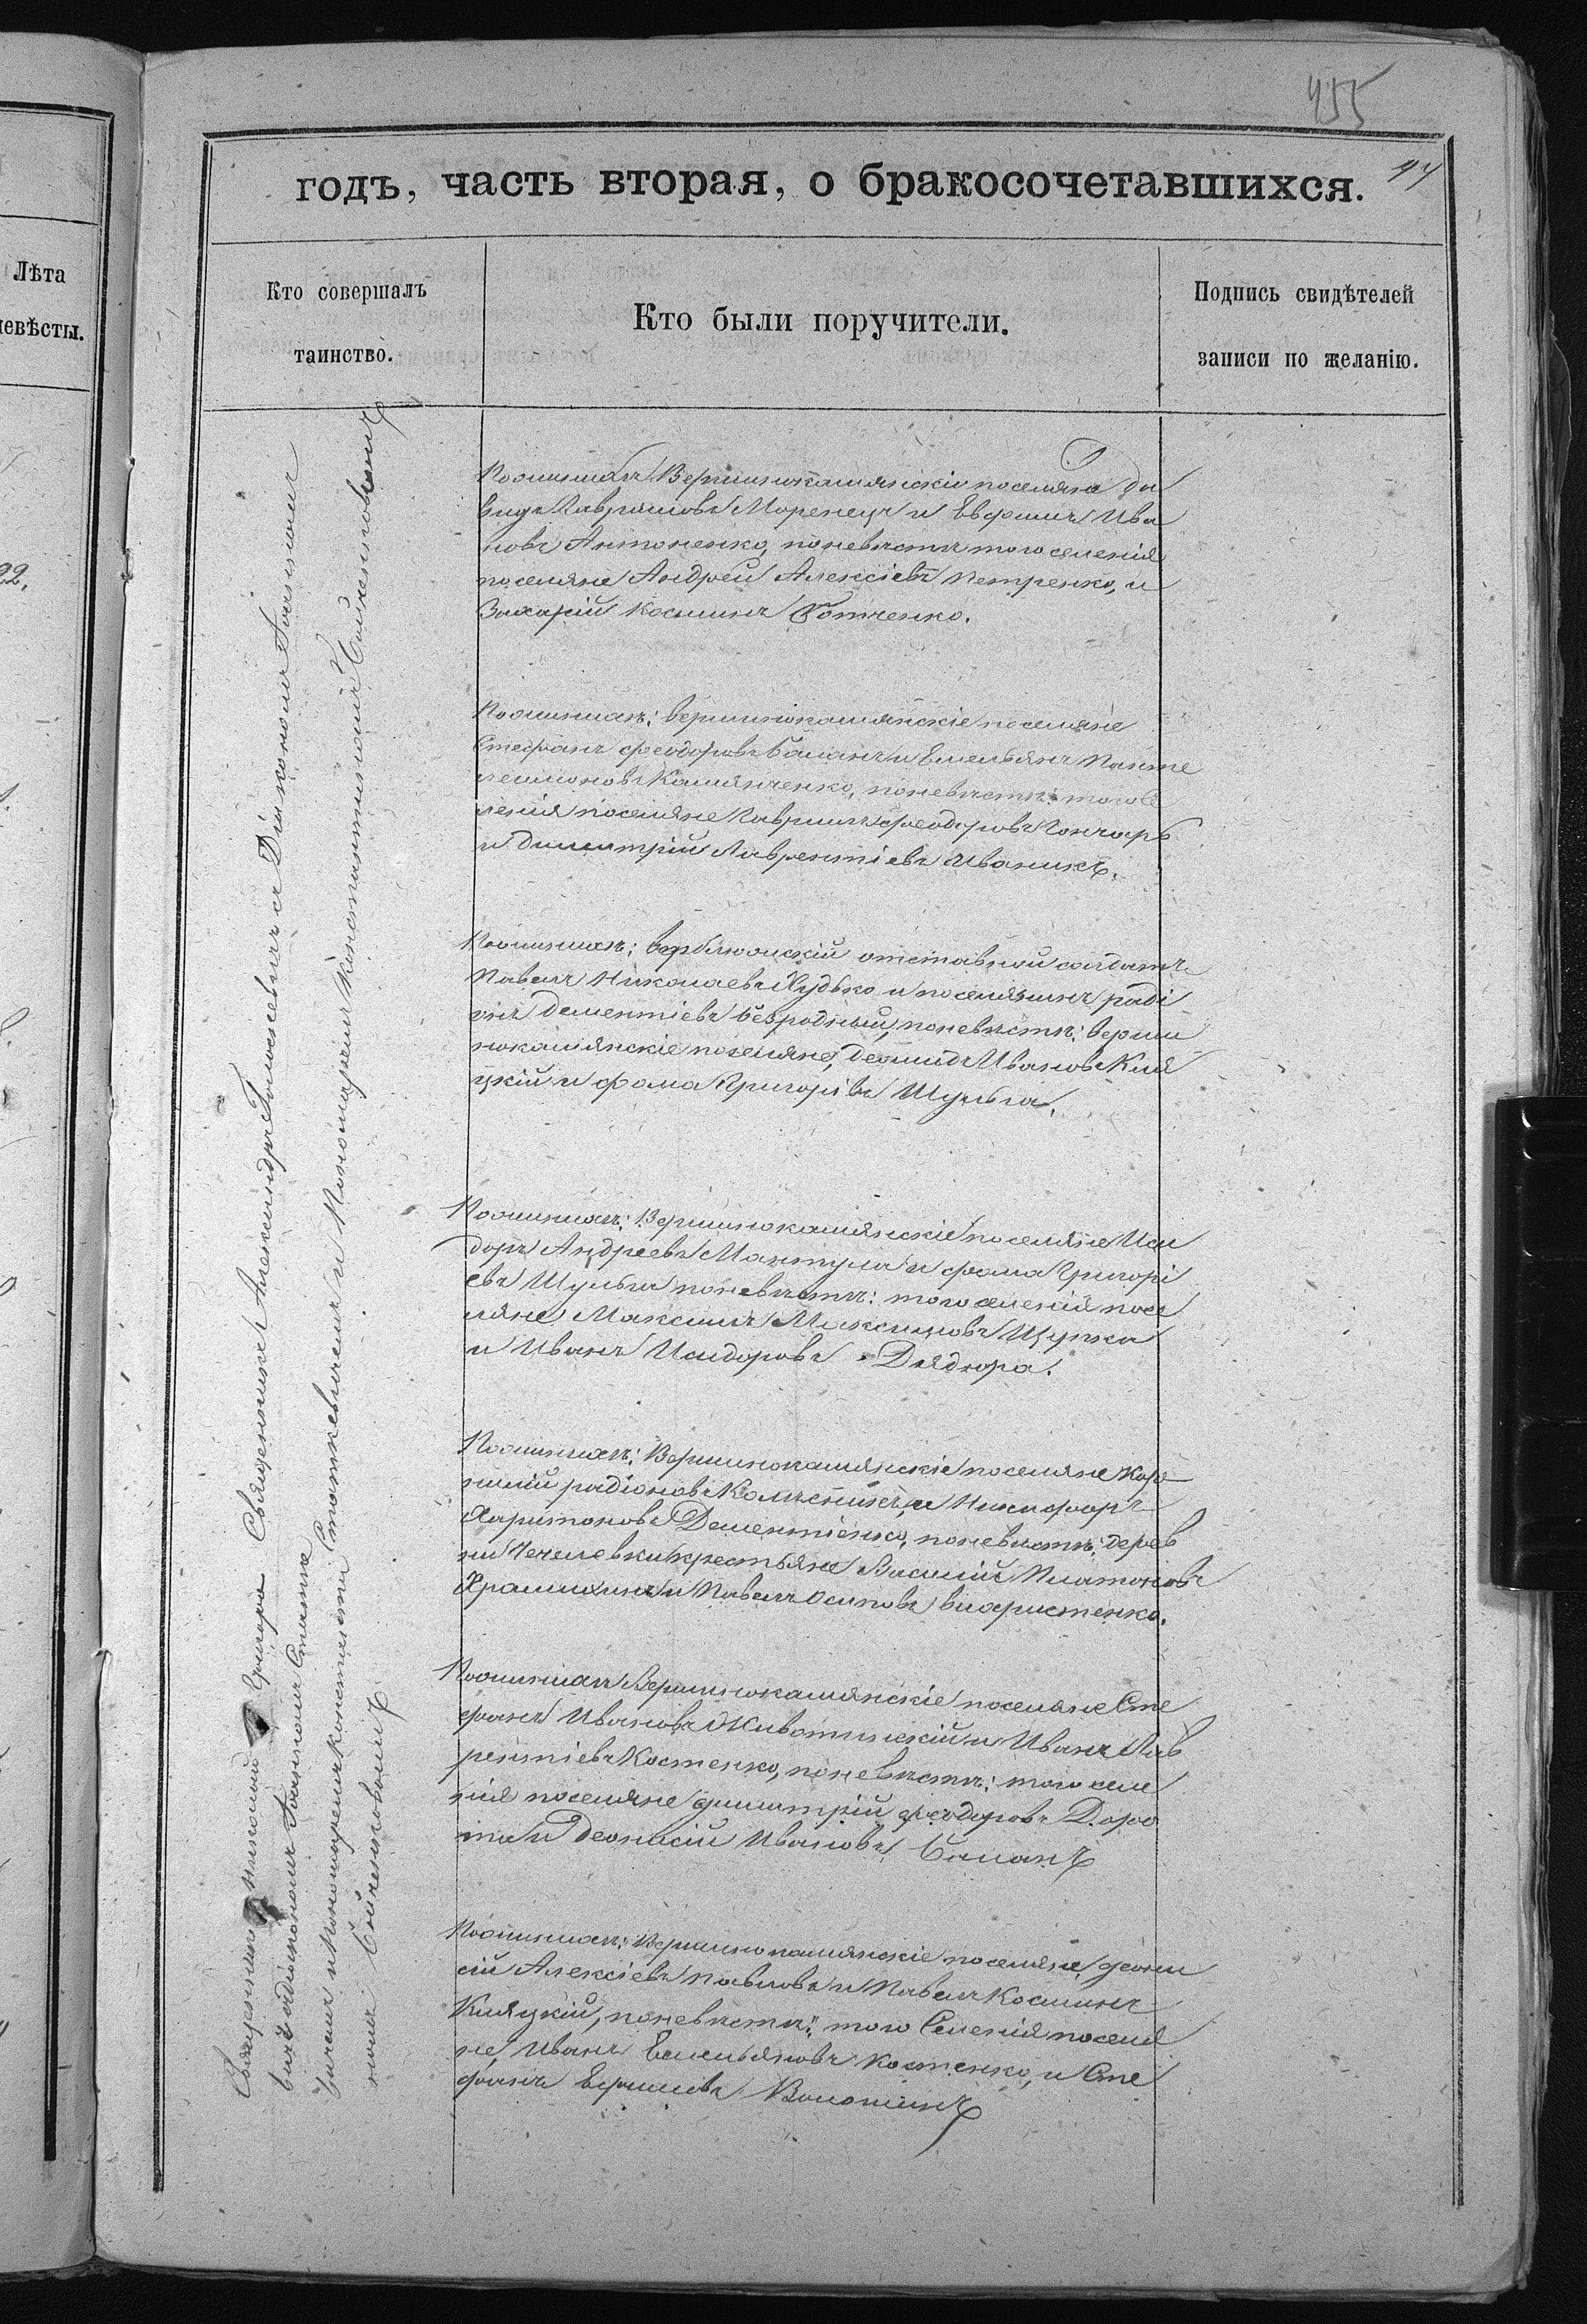 455
94
годъ, часть вторая, о бракосочетавшихся.
Лѣта
невѣсты.
22.
Кто совершалъ
таинство.
Кто были поручители.
Подпись свидѣтелей
записи по желанію.
Священникъ Александръ съ Діакономъ Іоанномъ
и Пономаремъ Константиномъ
Священникъ Григорій
Іоанномъ
и Пономаремъ
поженихѣ: Вершинокамянскіе поселяне Да
видъ Моренецъ и Евфимъ Ива
новъ Антоненко, поневѣстѣ того селенія
поселяне Андрей Алексіевъ Петренко, и
Захарій Косминъ Готченко.
поженихѣ: вершинокамянскіе поселяне
Стефанъ феодоровъ Баланъ и Емельянъ Панте
леимоновъ Камянченко, поневѣстѣ: того се
ленія поселяне Гавриилъ феодоровъ Гончаръ
и Димитрій Лаврентіевъ Иваникъ.
поженихѣ: верблюжскій отставной солдатъ
Павелъ Николаевъ Худько и поселянинъ радi
онъ Дементіевъ безродный, поневѣстѣ: верши
нокамянскіе поселяне, Деомидъ Ивановъ Кля
цкій и фома Григоріевъ Шульга.
поженихѣ: Вершинокамянскіе поселяне Иси
доръ Андреевъ Мантула и фома Григорі
евъ Шульга поневѣстѣ: того селенія посе
ляне Максимъ Максимовъ Щупка
и Иванъ Исидоровъ Дядюра.
поженихѣ: Вершинокамянскіе поселяне Кор
нилій радіоновъ Колесникъ, и Никифоръ
Харитоновъ Дементіенко, поневѣстѣ: дерев
ни Чечелевки крестьяне Василій Платоновъ
и Павелъ Осиповъ
поженихѣ Вершинокамянскіе поселяне Сте
фанъ Ивановъ Животинскій и Иванъ Лав
рентіевъ Костенко, поневѣстѣ: того селе
нія поселяне димитрій феодоровъ Доро
та и Деонисій Ивановъ Баланъ
поженихѣ: Вершинокамянскіе поселяне, деони
сій Алексіевъ Павловъ и Павелъ Косминъ
Кляцкій, поневѣстѣ: того Селенія поселя
не, Иванъ Емельяновъ Костенко, и Сте
фанъ Ефимовъ Волошинъ